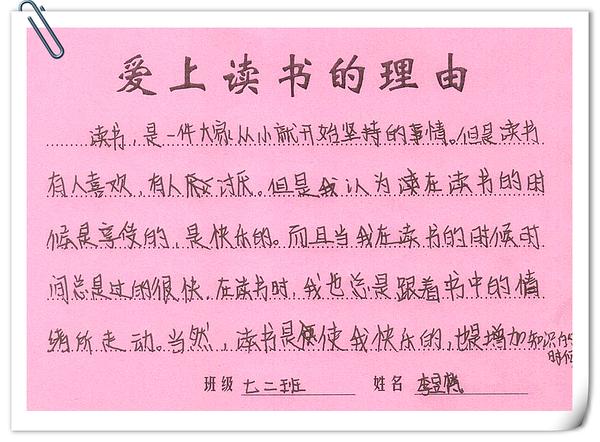 爱上读书的理由
读书,是一件大家从小就开始坚持的事情。但是读书
有人喜欢,有人讨厌。但是我认为在读书的时
候是享受的,是快乐的。而且当我在读书的时候时
间总是过的很快,在读书时,我也总是跟着书中的情
绪所走动。当然,读书是使我快乐的,也是增加知识的
时候
班级 七二班 姓名 李昱